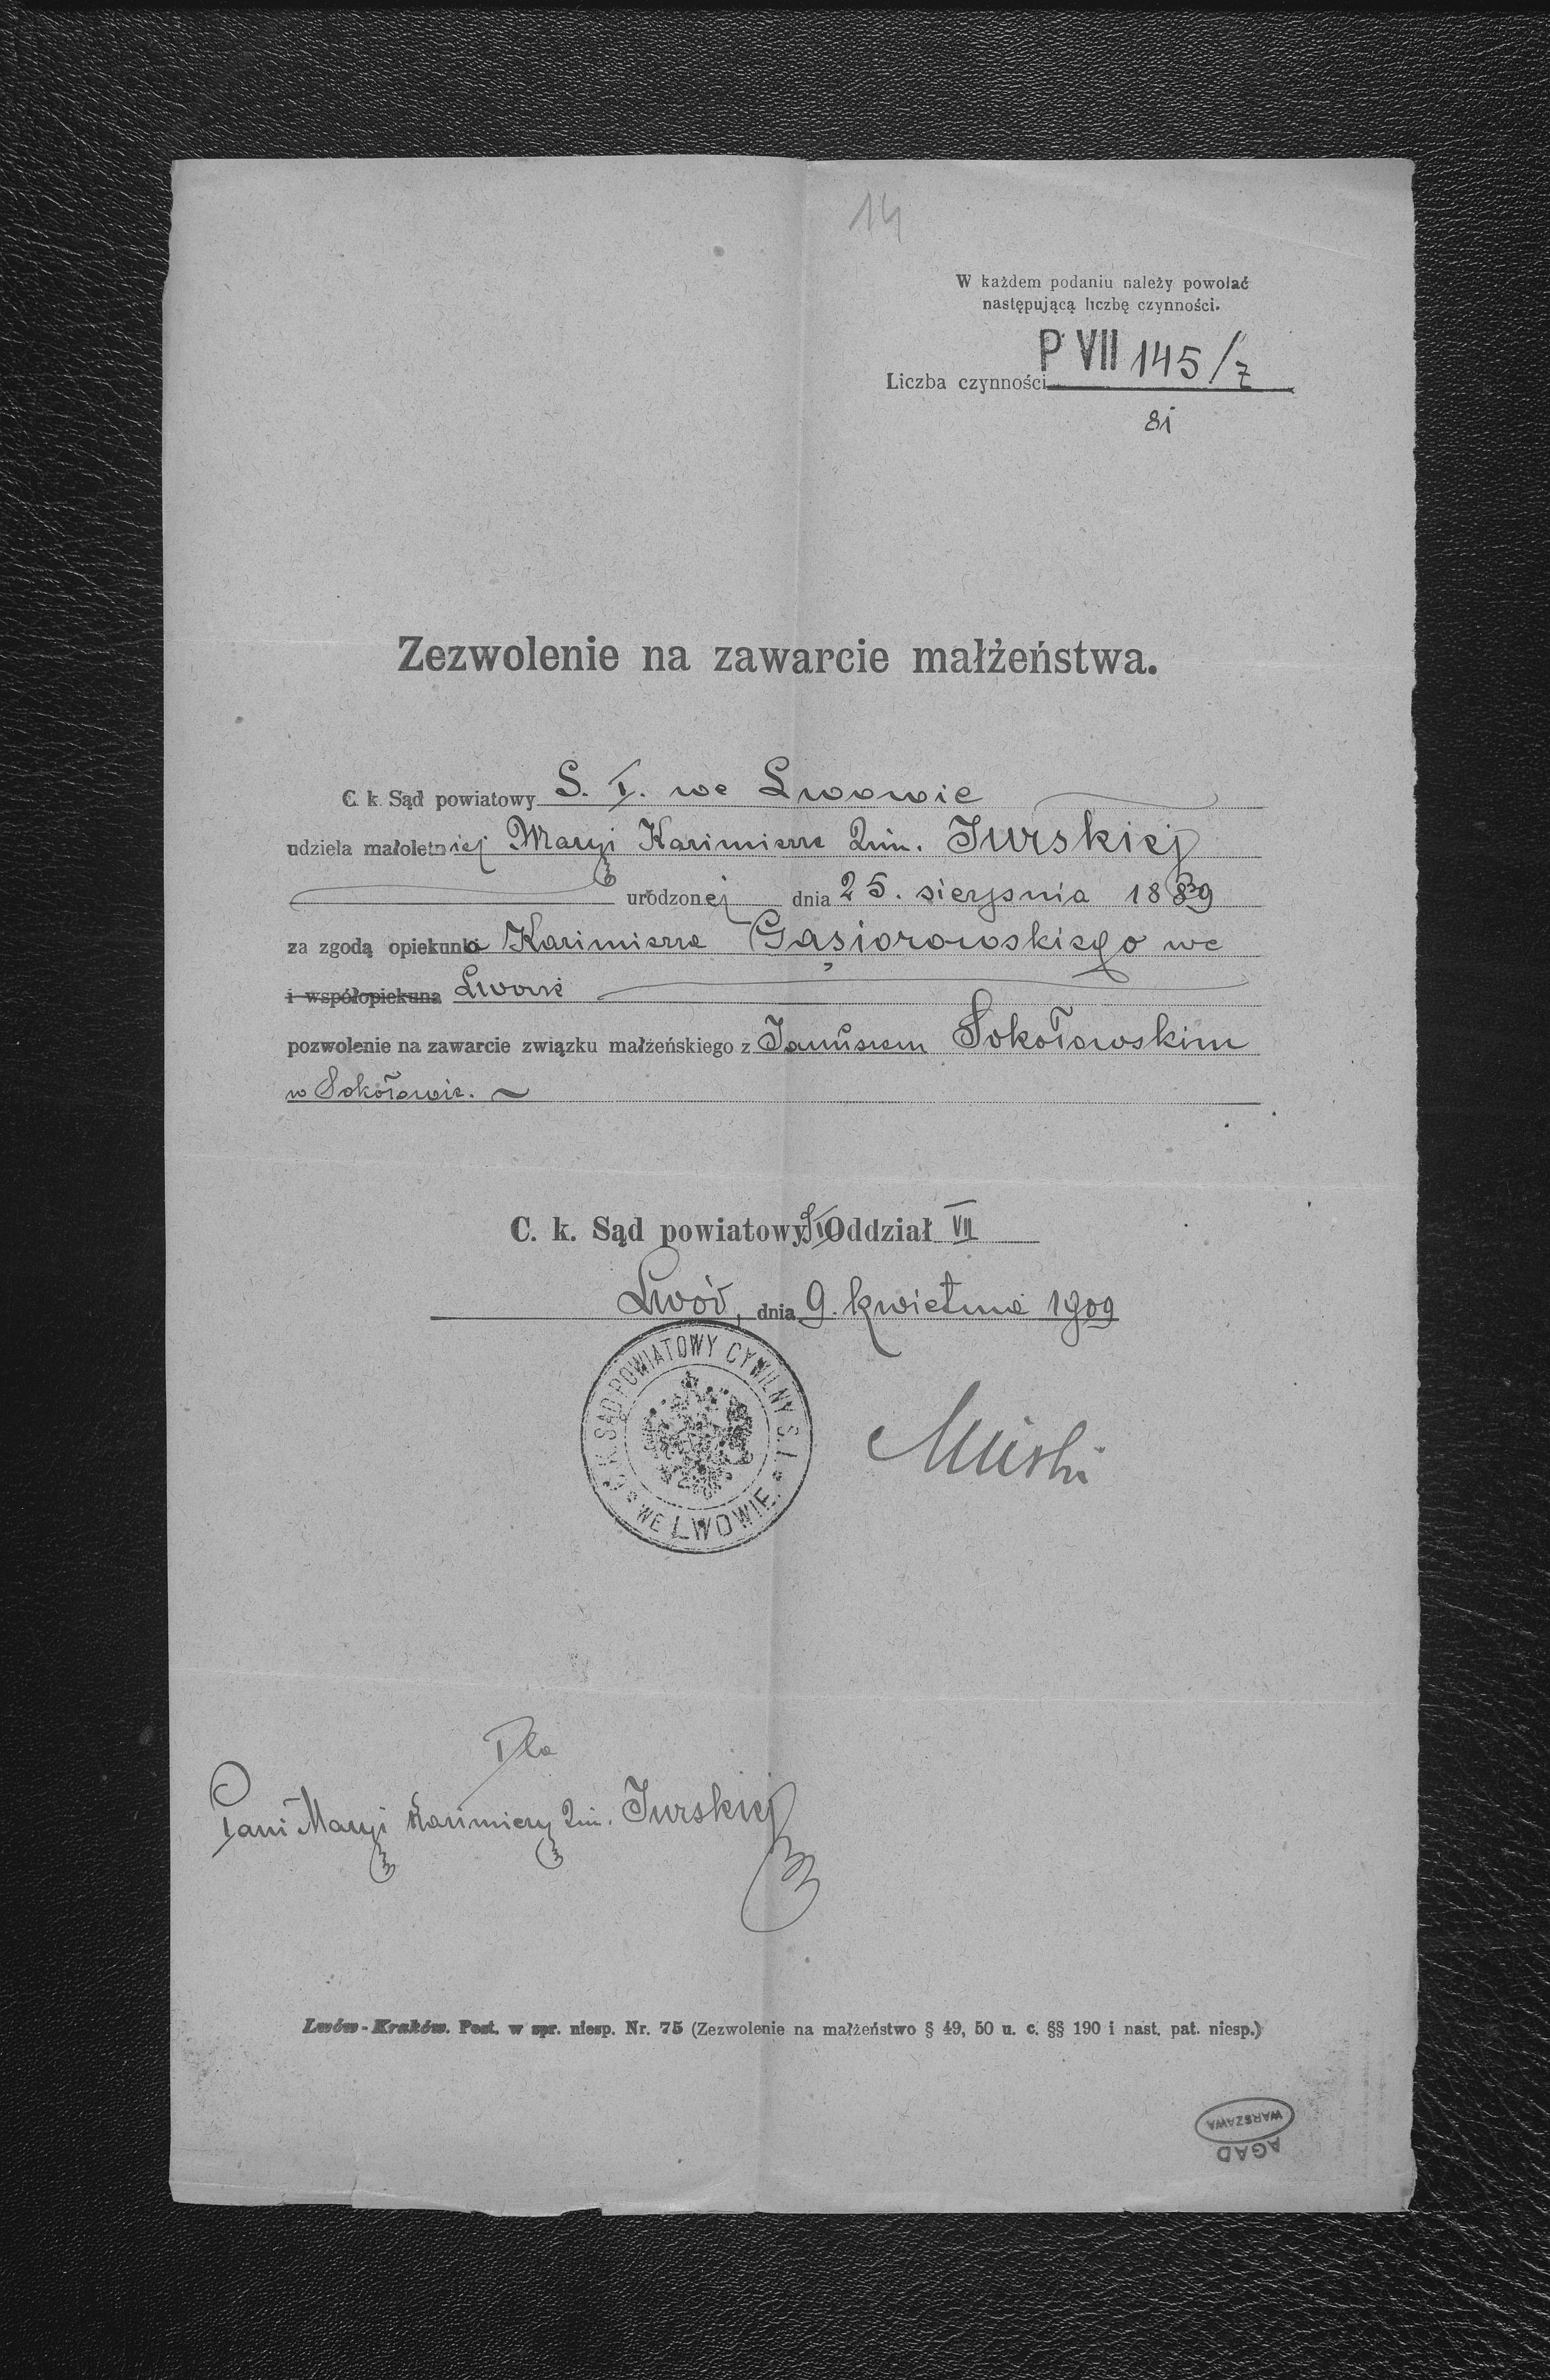 14
W każdem podaniu należy powołać
następującą liczbę czynności.
Liczba czynności P VII 145/7
81
Zezwolenie na zawarcie małżeństwa.
C. k. Sąd powiatowy S. I. we Lwowie
udziela małoletniej Maryi Kazimierze 2im. Jurskiej
urodzonej dnia 25. sierpnia 1889
za zgodą opiekuna Kazimierza Gąsiorowskiego we
i współopiekuna Lwowie
pozwolenie na zawarcie związku małżeńskiego z Januszem Sokołowskim
w Sokołowie.
C. k. Sąd powiatowy S I Oddział VII
Lwów, dnia 9. kwietnia 1909
C. K. SĄD POWIATOWY CYWILNY S. I.
WE LWOWIE
Dla
Pani Maryi Kazimiery 2im. Jurskiej
Lwów-Kraków. Post. w spr. niesp. Nr. 75 (Zezwolenie na małżeństwo § 49, 50 u. c. §§ 190 i nast. pat. niesp.)
AGAD
WARSZAWA